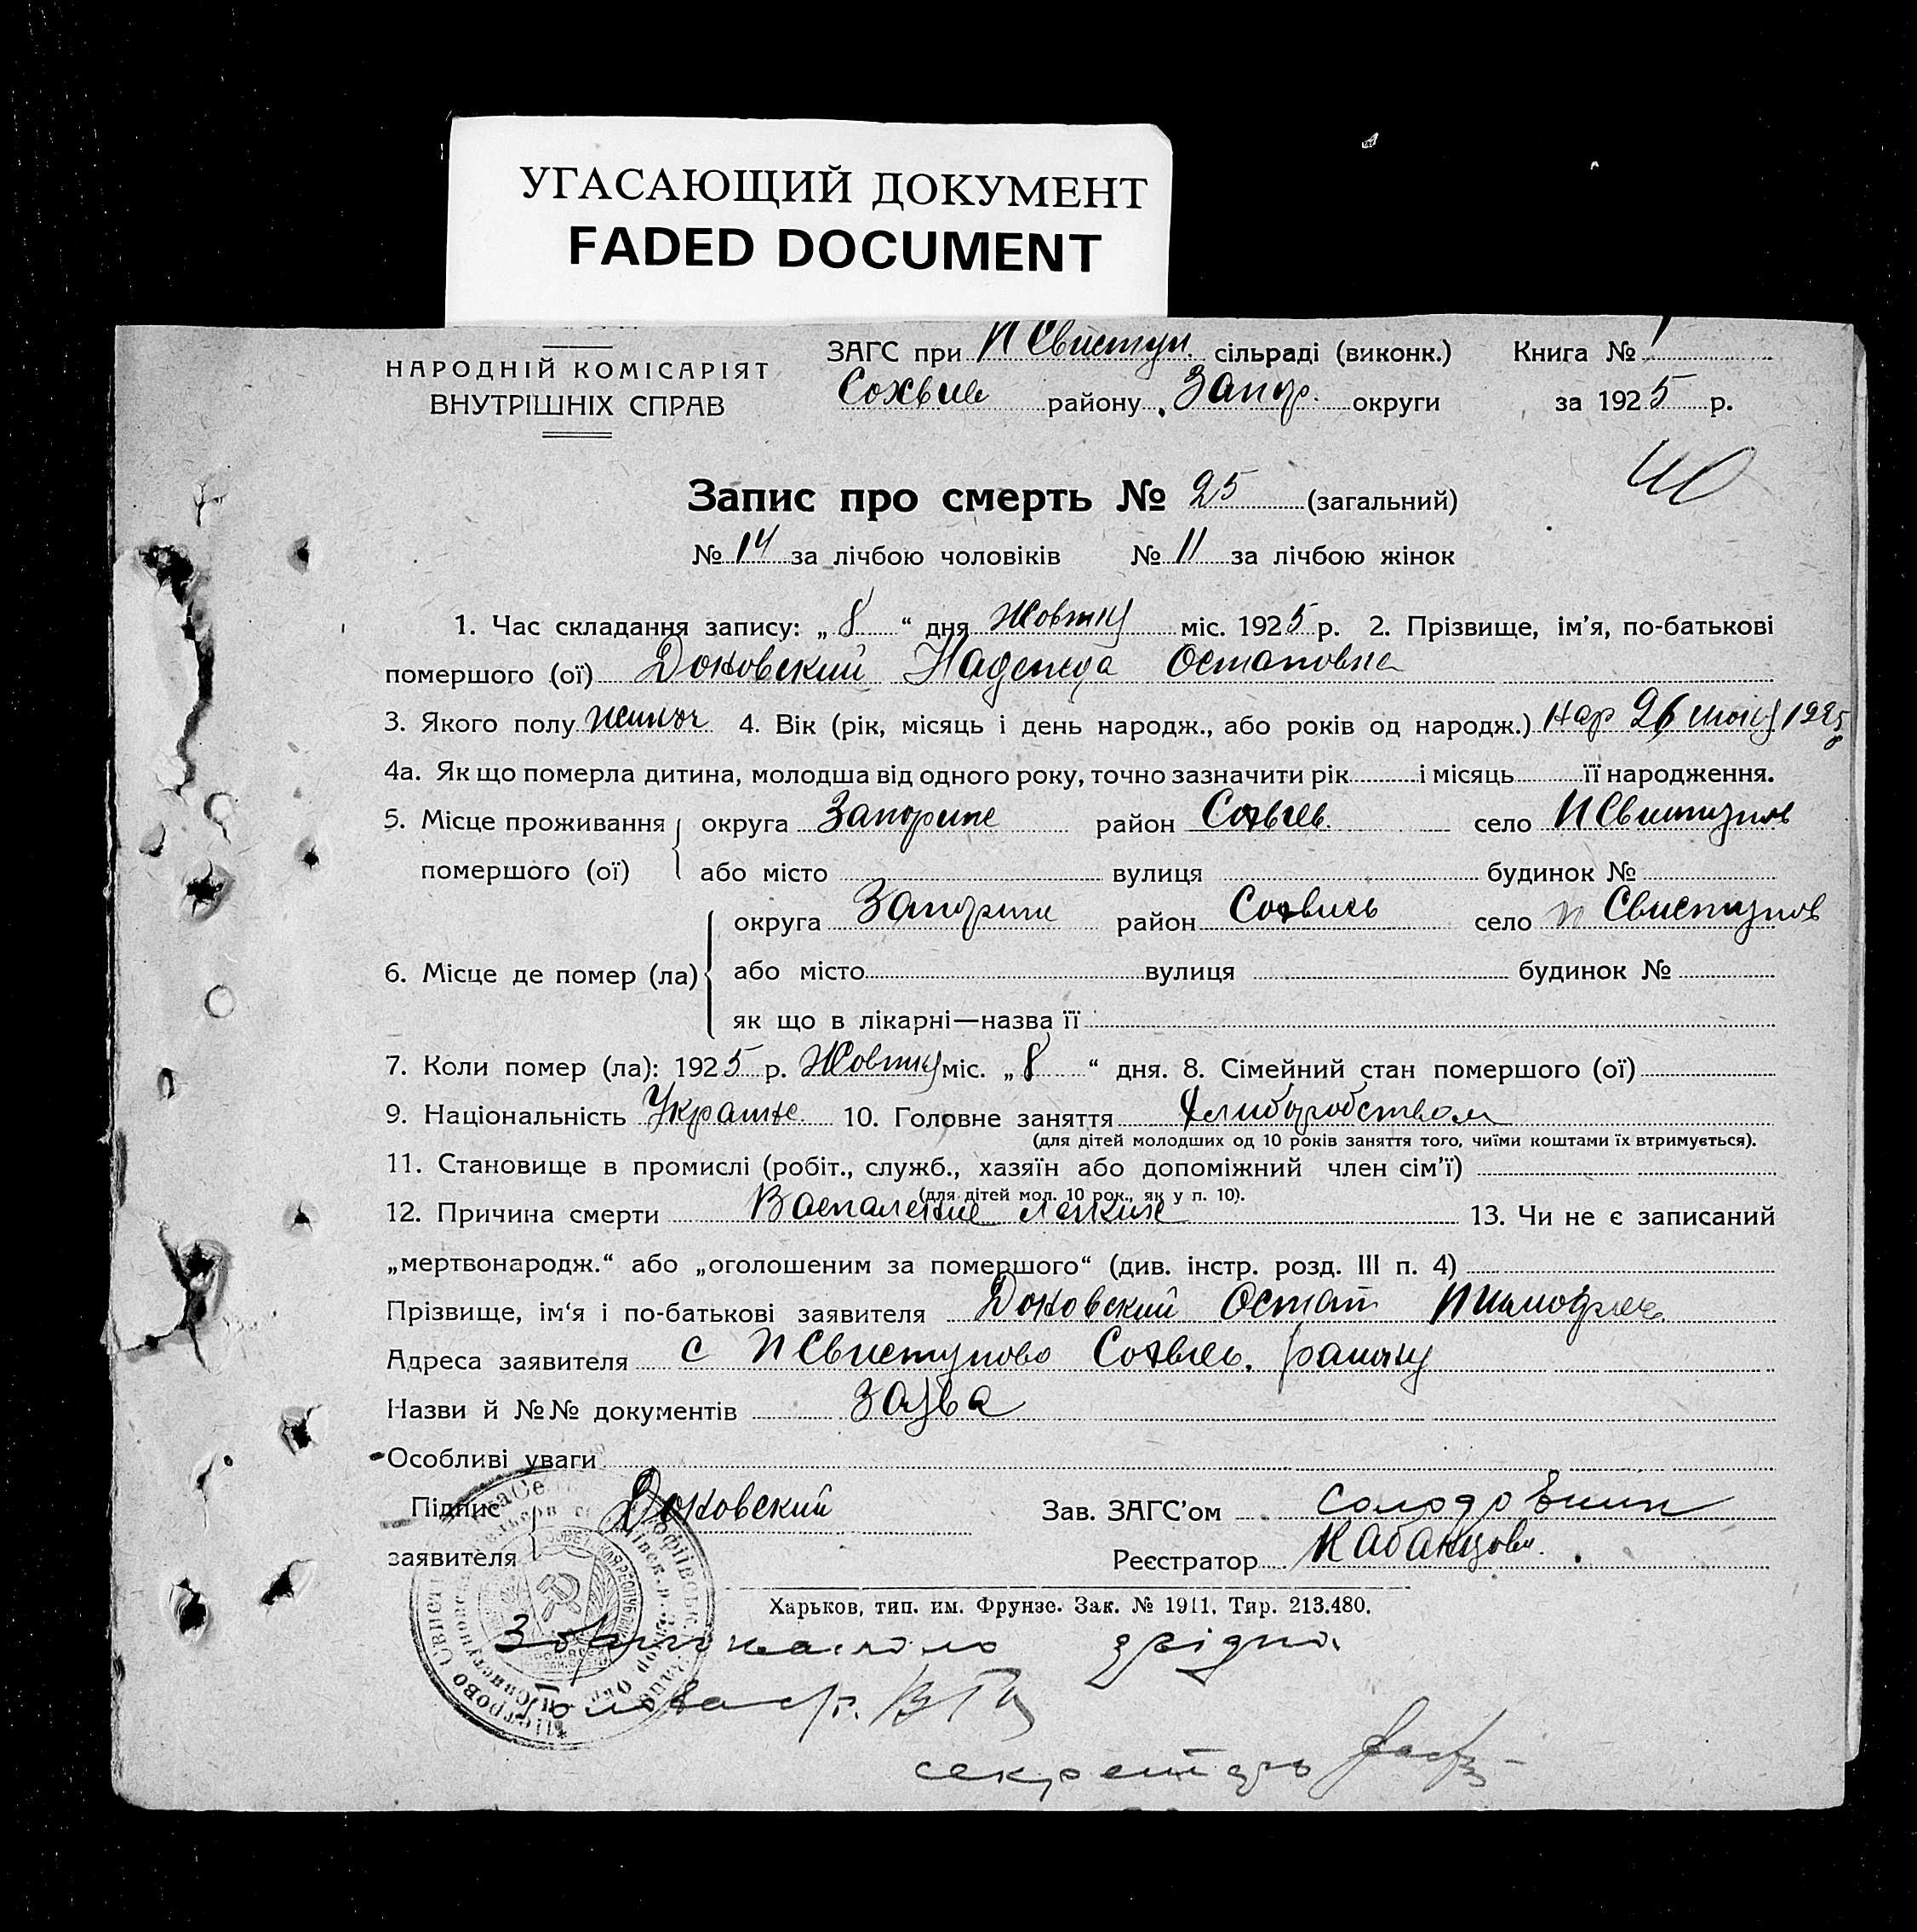 УГАСАЮЩИЙ ДОКУМЕНТ
FADED DOCUMENT
НАРОДНІЙ КОМІСАРІЯТ
ВНУТРІШНІХ СПРАВ
ЗАГС при П Свистун. сільраді (виконк.) Книга № 1
Софиев району Запор. округи за 1925 р.
40
Запис про смерть № 25 (загальний)
№ 14 за лічбою чоловіків № 11 за лічбою жінок
1. Час складання запису: „ 8 “ дня Жовтня міс. 1925 р. 2. Прізвище, ім'я, по-батькові
помершого (ої) Доновский Надежда Остаповна
3. Якого полу Жиноч 4. Вік (рік, місяць і день народж., або років од народж.) Нар 26 1925
4а. Як що померла дитина, молодша від одного року, точно зазначити рік і місяць її народження.
5. Місце проживання округа Запориже район Софиев. село П Свистунов
помершого (ої) або місто вулиця будинок №
округа Запориже район Софиев село п Свистунов
6. Місце де помер (ла) або місто вулиця будинок №
як що в лікарні—назва її
7. Коли помер (ла): 1925 р. Жовтня міс. „ 8 “ дня. 8. Сімейний стан помершого (ої)
9. Національність Украине. 10. Головне заняття Хлиборобством
(для дітей молодших од 10 років заняття того, чиїми коштами їх втримується).
11. Становище в промислі (робіт., служб., хазяїн або допоміжний член сім'ї)
(для дітей мол. 10 рок., як у п. 10).
12. Причина смерти Воспаление легких 13. Чи не є записаний
„мертвонародж.“ або „оголошеним за помершого“ (див. інстр. розд. III п. 4)
Прізвище, ім'я і по-батькові заявителя Доновский Остап
Адреса заявителя с П Свистуново Софиев. району
Назви й №№ документів Заява
Особливі уваги
Підпис Доновский Зав. ЗАГС'ом Солодовник
заявителя Реєстратор Кабанцов
Харьков, тип. им. Фрунзе. Зак. № 1911. Тир. 213.480.
З згідно.
Голова с/р.
секретарь